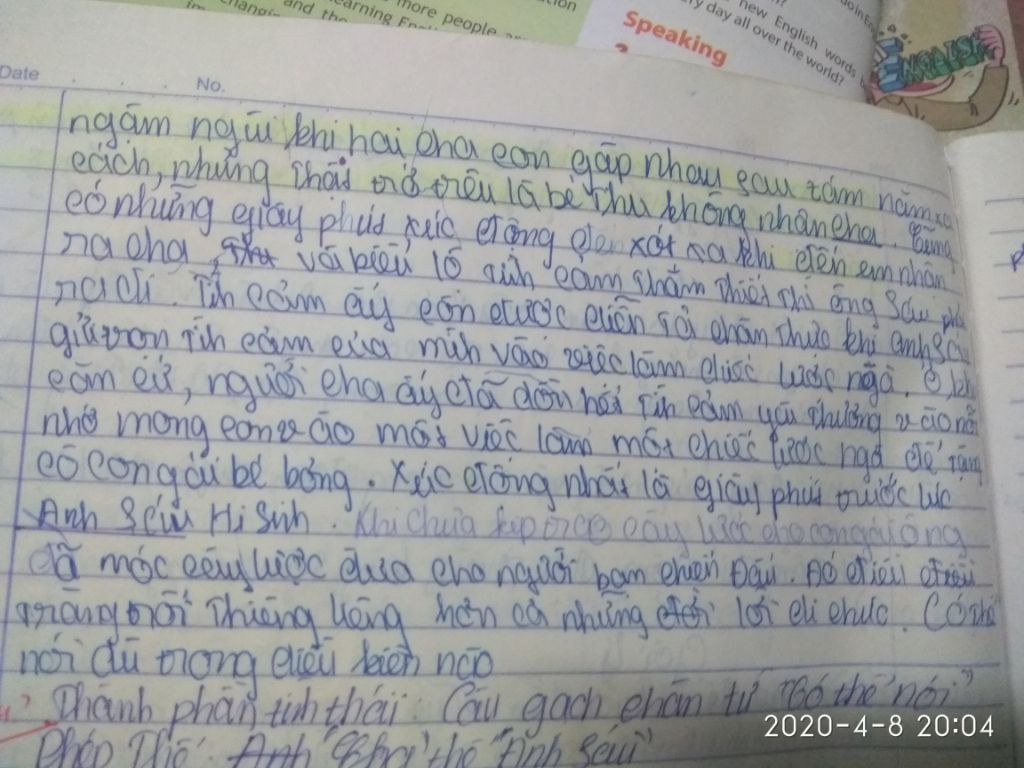 more people
learning Engl
and the
changin
ation
new English words
ry day all over the world?
Speaking
ENGLISH
Date No.
ngắm ngủi khi hai cha con gặp nhau sau tám năm xa
cách, nhưng thật trớ trêu là bé Thu không nhận cha. Cũng
có những giây phút xúc động đến xót xa khi đến em nhận
ra cha và biểu lộ tình cảm thắm thiết thì ông Sáu phải
ra đi. Tình cảm ấy còn được diễn tả chân thực khi anh Sáu
gửi trọn tình cảm của mình vào việc làm chiếc lược ngà. Ở khu
căn cứ, người cha ấy đã dồn hết tình cảm yêu thương vào nỗi
nhớ mong con vào một việc làm một chiếc lược ngà để tặng
cô con gái bé bỏng. Xúc động nhất là giây phút trước lúc
Anh Sáu Hi Sinh. Khi chưa kịp trao cây lược cho con gái ông
đã móc cây lược đưa cho người bạn chiến Đấu. Đó điều
trăng trối Thiêng liêng hơn cả những lời di chúc. Có thể
nói dù trong điều kiện nào
Thành phần tình thái: Câu gạch chân từ "Có thể nói"
Phép Thế: Anh thế "Anh Sáu"
2020-4-8 20:04